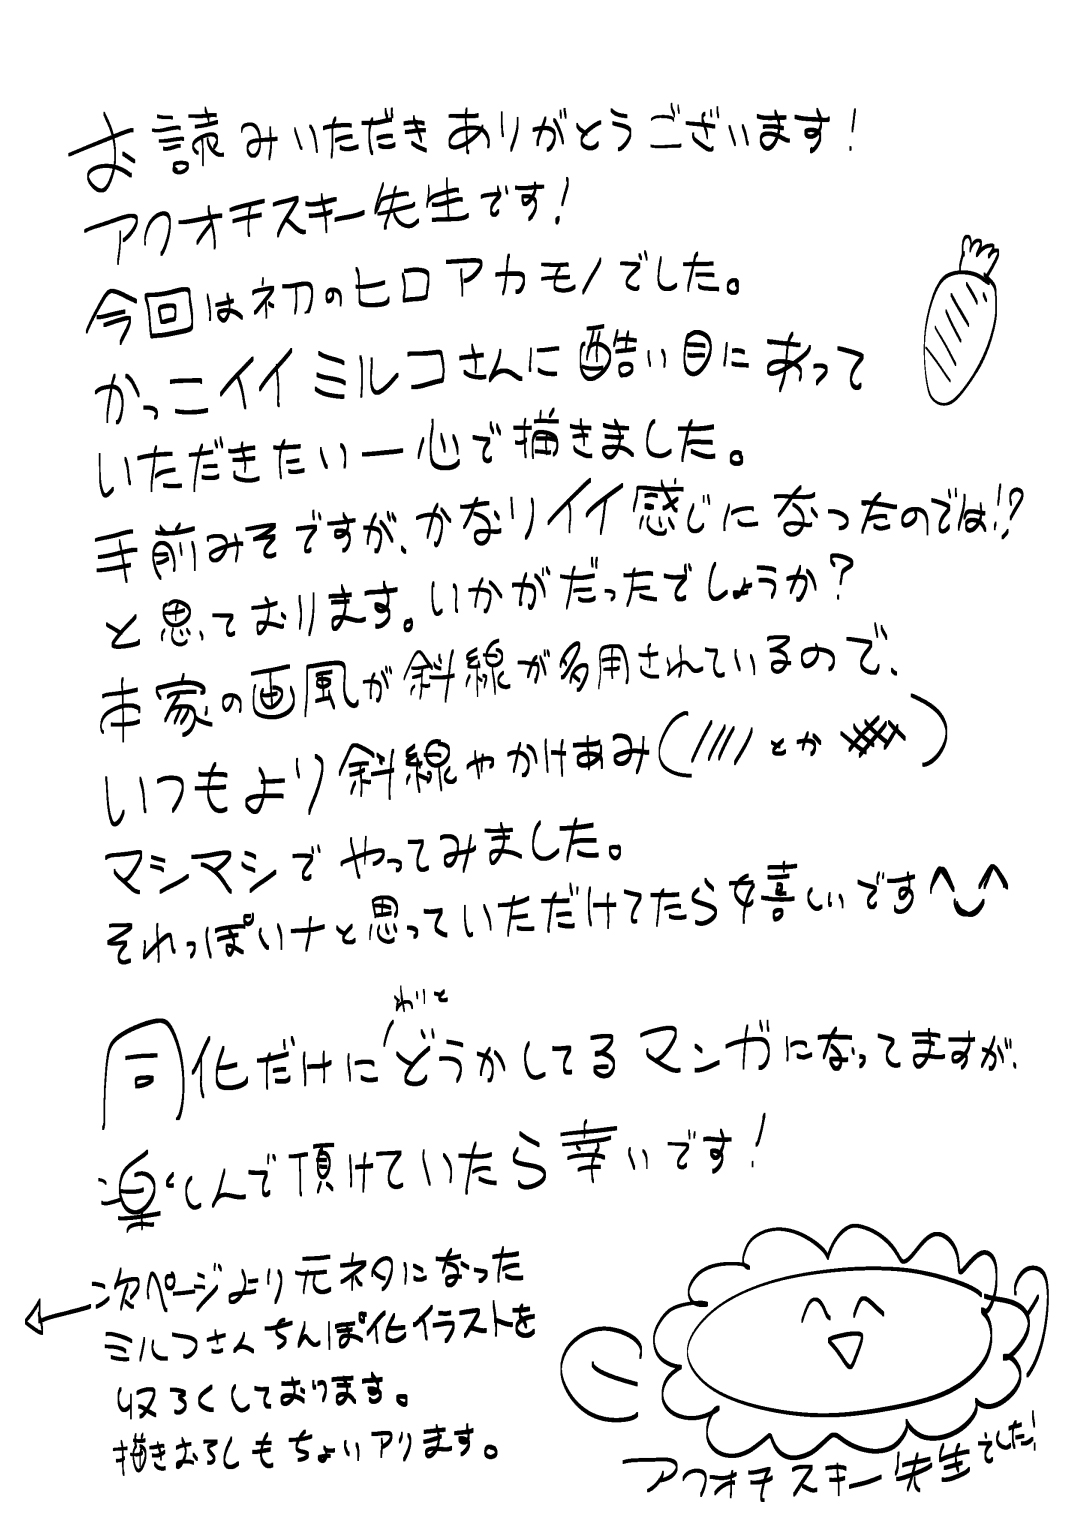 お読みいただきありがとうございます!
アクオチスキー先生です!
今回は初のヒロアカモノでした。
かっこイイミルコさんに酷い目にあって
いただきたい一心で描きました。
手前みそですが、かなりイイ感じになったのでは!?
と思っております。いかがだったでしょうか?
本家の画風が斜線が多用されているので、
いつもより斜線やかけあみ(////とか    )
マシマシでやってみました。
それっぽいナと思っていただけてたら嬉しいです^‿^
わりと
同化だけにどうかしてるマンガになってますが、
楽しんで頂けていたら幸いです!
次ページより元ネタになった
ミルコさんちんぽ化イラストを
収ろくしております。
描きおろしもちょいアリます。
アクオチスキー先生でした!